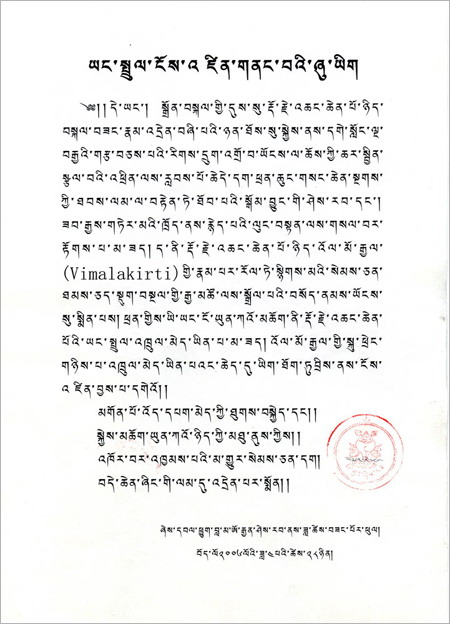 ཡང་སྤྲུལ་ངོས་འཛིན་གནང་བའི་ཞུ་ཡིག
༄།།དེ་ཡང་། སྒྲོན་བསྐལ་གྱི་དུས་སུ་རྡོ་རྗེ་འཆང་ཆེན་པོ་ཉིད་
བསྐལ་བཟང་རྣམ་འདྲེན་བཞི་པའི་ཉན་ཐོས་སུ་སྐྱེས་ནས་དགེ་སློང་ལྔ་
བརྒྱའི་གཙོ་བཅས་པའི་རིགས་དྲུག་འགྲོ་བ་ཡོངས་ལ་ཆོས་ཀྱི་ཆར་སྦྱིན་
སྩལ་བའི་འཕྲིན་ལས་རླབས་པོ་ཆེ་དེ་དག་ཕྲན་ཆུང་གསང་ཆེན་སྔགས་
ཀྱི་ཐབས་ལམ་ལ་བརྟེན་ཏེ་ཐོབ་པའི་སྒོམ་བྱུང་གི་ཤེས་རབ་དང་།
ཟབ་རྒྱས་གཏེར་མའི་ཁྲོད་ནས་རྙེད་པའི་ལུང་བསྟན་ལས་གསལ་བར་
རྟོགས་པ་མ་ཟད། ད་ནི་རྡོ་རྗེ་འཆང་ཆེན་པོ་ཉིད་འོལ་མོ་རྒྱལ་
(Vimalakirti)གྱི་རྣམ་པར་རོལ་ཏེ་སྙིགས་མའི་སེམས་ཅན་
ཐམས་ཅད་སྡུག་བསྔལ་གྱི་རྒྱ་མཚོ་ལས་སྒྲོལ་པའི་བསོད་ནམས་ཡོངས་
སུ་སྨིན་པས། ཕྲན་གྱིས་ཡི་ཡང་ངོ་ཡུན་ཀའོ་མཆོག་ནི་རྡོ་རྗེ་འཆང་ཆེན་
པོའི་ཡང་སྤྲུལ་འཁྲུལ་མེད་ཡིན་པ་མ་ཟད། འོལ་མོ་རྒྱལ་གྱི་སྐུ་ཕྲེང་
གཉིས་པ་འཁྲུལ་མེད་ཡིན་པའང་ཆེད་དུ་ཡིག་ཐོག་ཏུ་བྲིས་ནས་ངོས་
འཛིན་བྱས་པ་དགེའོ།།
མགོན་པོ་འོད་དཔག་མེད་ཀྱི་ཐུགས་བསྐྱེད་དང་།།
སྐྱེས་མཆོག་ཡུན་ཀའོ་ཉིད་ཀྱི་མཐུ་ནུས་ཀྱིས།།
འཁོར་བར་འཁྱམས་པའི་མ་གྱུར་སེམས་ཅན་དག།
བདེ་ཆེན་ཞིང་གི་ལམ་དུ་འདྲེན་པར་སྨོན།།
ཞེས་དབལ་ཕྱུག་བླ་མ་ཨོ་རྒྱན་ཤེས་རབ་ནས་ཟླ་ཚེས་བཟང་པོར་ཕུལ།
བོད་ལོ་༢༠༠༦ལོའི་ཟླ་༤པའི་ཚེས་༢༨ཉིན།